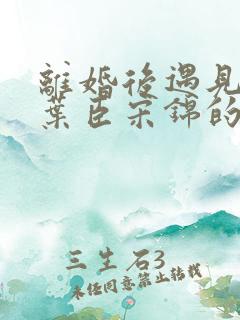 離婚後遇見
葉臣宋錦的
三生石3
未经同意禁止转载